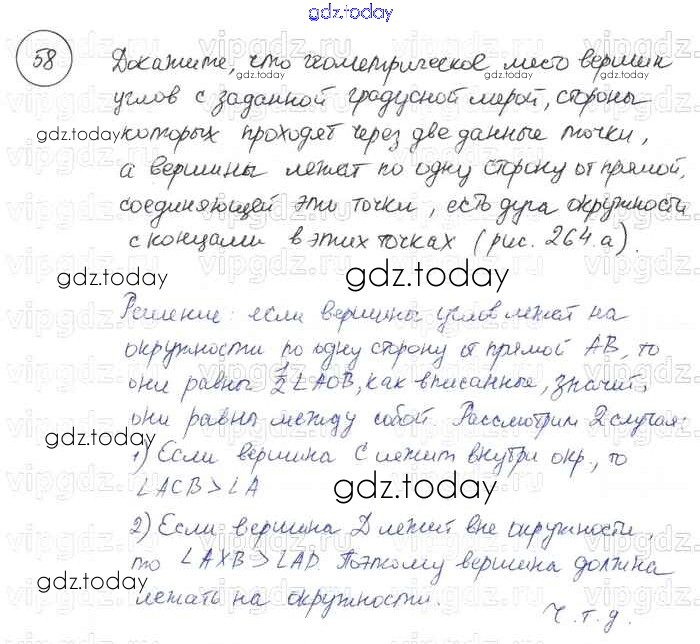 gdz.today
58 Докажите, что геометрическое место вершин
углов с заданной градусной мерой, стороны
gdz.today которых проходят через две данные точки,
а вершины лежат по одну сторону от прямой,
соединяющей эти точки, есть дуга окружности
с концами в этих точках (рис. 264.а).
gdz.today gdz.today
Решение: если вершины углов лежат на
окружности по одну сторону от прямой AB, то
они равны 1/2 ∠AOB, как вписанные, значит,
они равны между собой. Рассмотрим 2 случая:
gdz.today
1) Если вершина C лежит внутри окр., то
∠ACB > ∠A
gdz.today
2) Если вершина D лежит вне окружности,
то ∠AXB > ∠AD. Поэтому вершина должна
лежать на окружности.
Ч.т.д.
gdz.today